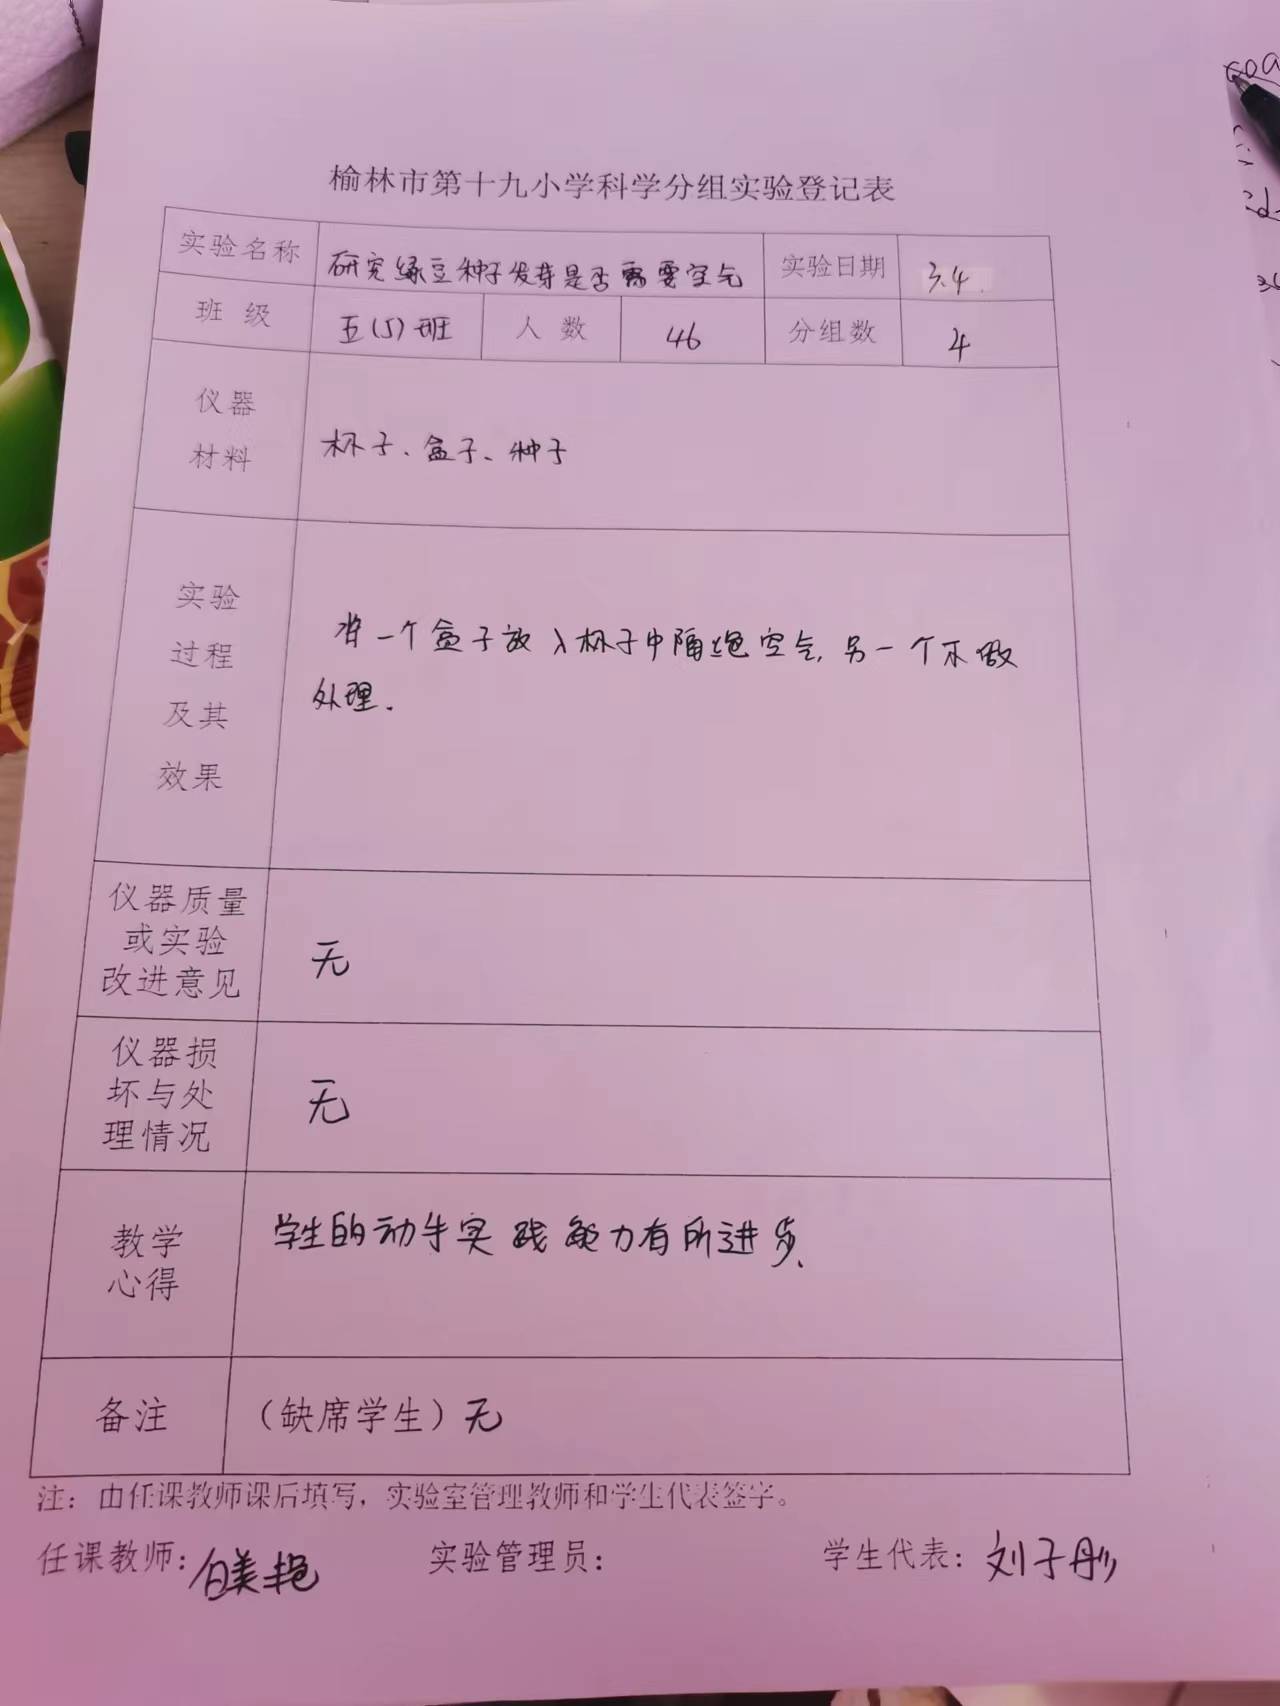 榆林市第十九小学科学分组实验登记表
实验名称 研究绿豆种子发芽是否需要空气 实验日期 3.4.
班 级 五(5)班 人 数 46 分组数 4
仪器
材料
杯子、盒子、种子
实验
过程
及其
效果
将一个盒子放入杯子中隔绝空气,另一个不做
处理.
仪器质量
或实验
改进意见
无
仪器损
坏与处
理情况
无
教学
心得
学生的动手实践能力有所进步、
备注 （缺席学生）无
注：由任课教师课后填写，实验室管理教师和学生代表签字。
任课教师：白美艳 实验管理员： 学生代表：刘子彤